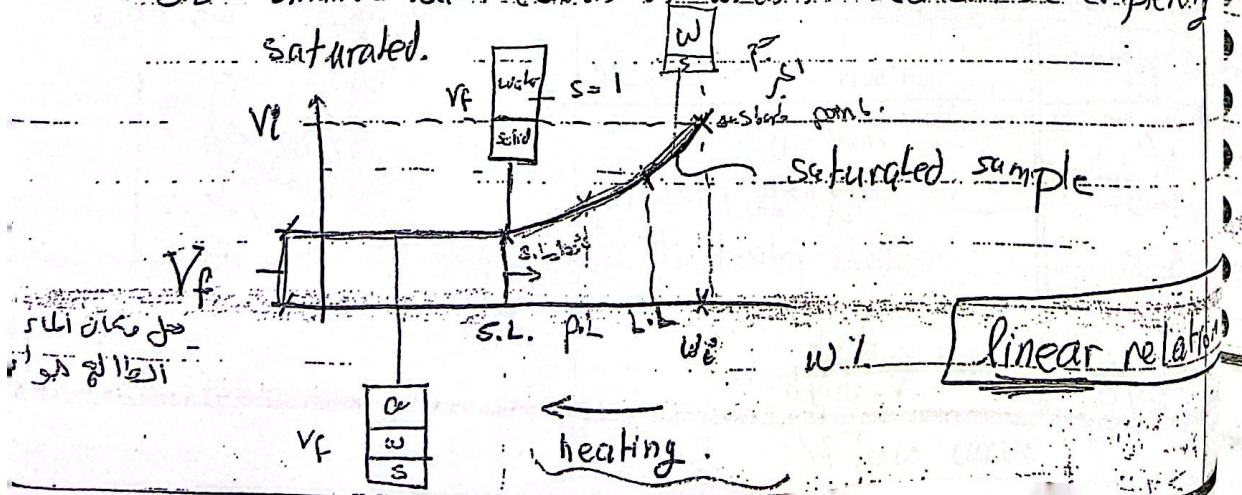 saturated.
w
s
Vf
water
solid
s = 1
Vi
s = 1
start point.
saturated sample
Vf
S.L.
P.L
L.L
wi
w %
linear relation
مكان الماء
الطالع هو
Vf
a
w
s
heating.